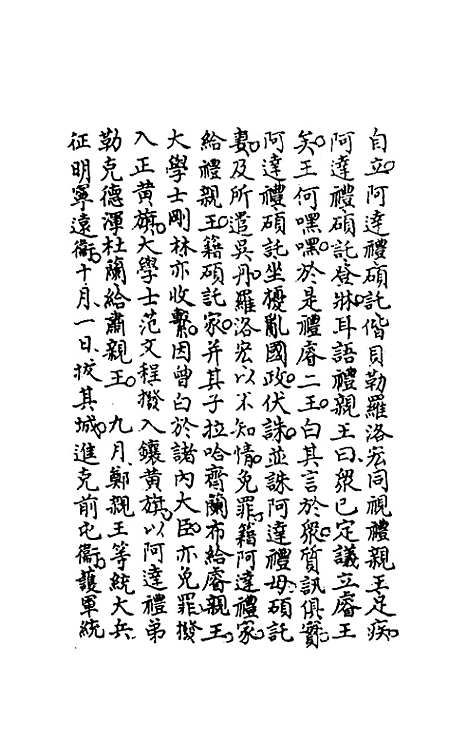 自立阿達禮碩託偕貝勒羅洛宏同視禮親王足疾
阿達禮碩託登牀耳語禮親王曰眾已定議立睿王
矣王何嘿嘿於是禮睿二王白其言於眾質訊俱實
阿達禮碩託坐擾亂國政伏誅並誅阿達禮母碩託
妻及所遣吳丹羅洛宏以不知情免罪籍阿達禮家
給禮親王籍碩託家并其子拉哈齊蘭布給睿親王
大學士剛林亦收繫因曾白於諸內大臣亦免罪撥
入正黃旗大學士范文程撥入鑲黃旗以阿達禮弟
勒克德渾杜蘭給肅親王 九月鄭親王等統大兵
征明寧遠衞十月一日抜其城進克前屯衞護軍統